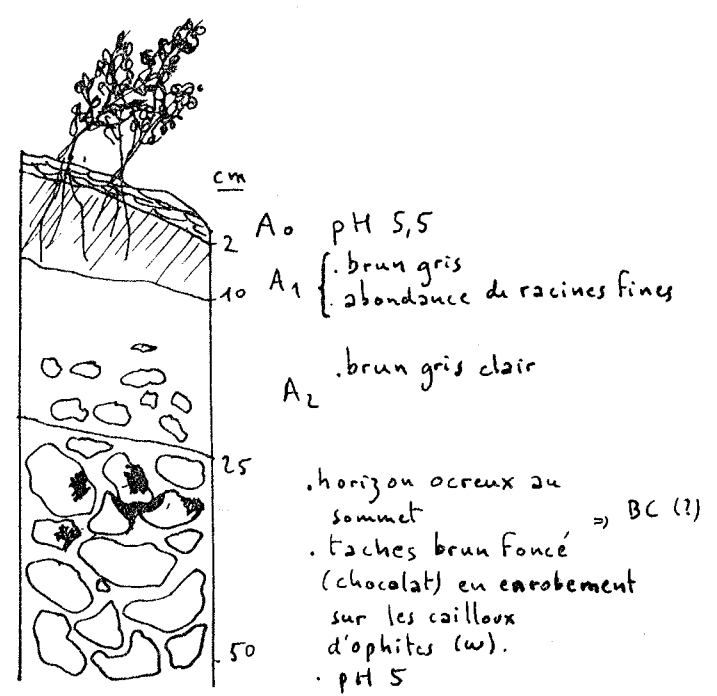 cm
2 A₀ pH 5,5
A₁ . brun gris
10 . abondance de racines fines
. brun gris clair
A₂
25
. horizon ocreux au
sommet ⇒ BC (?)
. taches brun foncé
(chocolat) en enrobement
sur les cailloux
d'ophites (w).
50
. pH 5